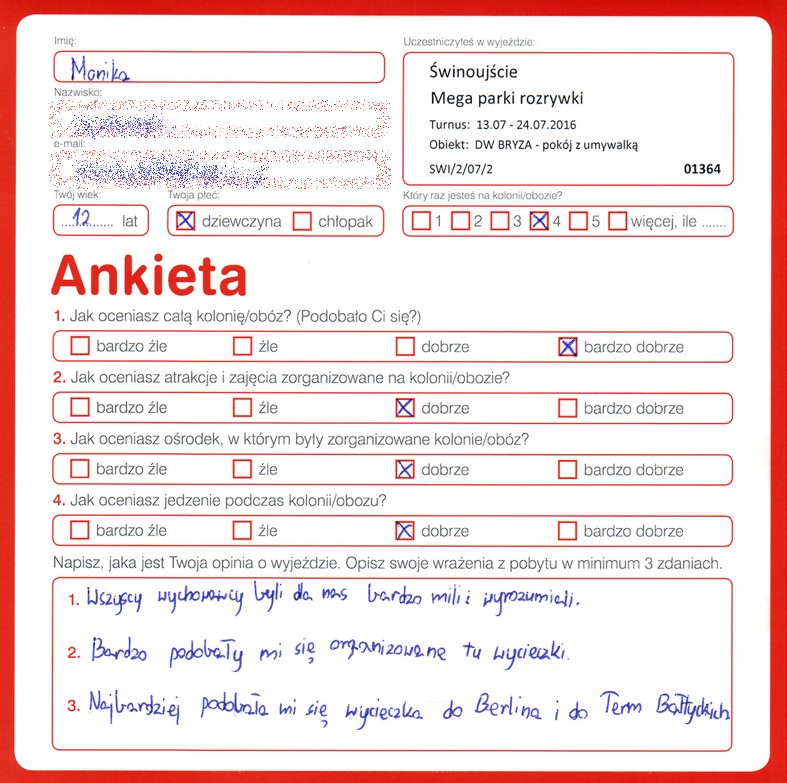 Imię:
Monika
Nazwisko:
e-mail:
Twój wiek:
12 lat
Twoja płeć:
dziewczyna chłopak
Uczestniczyłeś w wyjeździe:
Świnoujście
Mega parki rozrywki
Turnus: 13.07 - 24.07.2016
Obiekt: DW BRYZA - pokój z umywalką
SWI/2/07/2 01364
Który raz jesteś na kolonii/obozie?
1 2 3 4 5 więcej, ile .......
Ankieta
1. Jak oceniasz całą kolonię/obóz? (Podobało Ci się?)
bardzo źle źle dobrze bardzo dobrze
2. Jak oceniasz atrakcje i zajęcia zorganizowane na kolonii/obozie?
bardzo źle źle dobrze bardzo dobrze
3. Jak oceniasz ośrodek, w którym były zorganizowane kolonie/obóz?
bardzo źle źle dobrze bardzo dobrze
4. Jak oceniasz jedzenie podczas kolonii/obozu?
bardzo źle źle dobrze bardzo dobrze
Napisz, jaka jest Twoja opinia o wyjeździe. Opisz swoje wrażenia z pobytu w minimum 3 zdaniach.
1. Wszyscy wychowawcy byli dla nas bardzo mili i wyrozumiali.
2. Bardzo podobały mi się organizowane tu wycieczki.
3. Najbardziej podobała mi się wycieczka do Berlina i do Term Bałtyckich